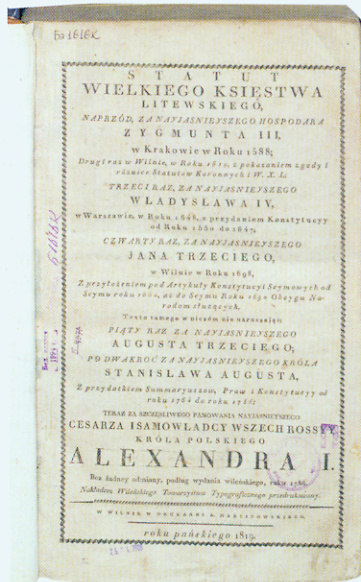 Бэ 1616К
STATUT
WIELKIEGO KSIĘSTWA
LITEWSKIEGO,
NAPRZÓD, ZA NAYIAŚNIEYSZEGO HOSPODARA
ZYGMUNTA III,
w Krakowie w Roku 1588;
Drugi raz w Wilnie, w Roku z pokazaniem zgody i
różnicy Statutow Koronnych i W. X. L.
TRZECI RAZ, ZA NAYIAŚNIEYSZEGO
WŁADYSŁAWA IV,
w Warszawie, w Roku 1648, z przydaniem Konstytucyy
od Roku 1550 do 1647.
CZWARTY RAZ, ZA NAYIAŚNIEYSZEGO
JANA TRZECIEGO,
w Wilnie w Roku 1698,
Z przyłożeniem pod Artykuły Konstytucyi Seymowych od
Seymu roku aż do Seymu Roku Oboygu Na-
rodom służących,
Textu samego w niczém nie naruszaiąc;
PIĄTY RAZ ZA NAYIAŚNIEYSZEGO
AUGUSTA TRZECIEGO;
PO DWAKROĆ ZA NAYIAŚNIEYSZEGO KRÓLA
STANISŁAWA AUGUSTA,
Z przydatkiem Summaryuszow, Praw i Konstytucyy od
roku 1764 do roku 1786:
TERAZ ZA SZCZĘŚLIWEGO PANOWANIA NAYIAŚNIEYSZEGO
CESARZA I SAMOWŁADCY WSZECH ROSSYY
KRÓLA POLSKIEGO
ALEXANDRA I.
Bez żadney odmiany, podług wydania wileńskiego, roku 1786.
Nakładem Wileńskiego Towarzystwa Typograficznego przedrukowany.
W WILNIE W DRUKARNI A. MARCINOWSKIEGO.
roku pańskiego 1819.